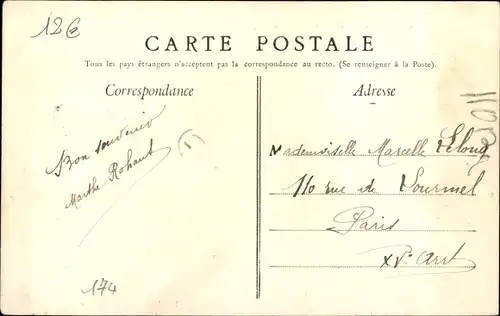 18€
CARTE POSTALE
Tous les pays étrangers n'acceptent pas la correspondance au recto. (Se renseigner à la Poste).
Correspondance
Adresse
Bon souvenir
Marthe Rohaut
1
Mademoiselle Marcelle Lelong
110 rue de Lourmel
Paris
XVe Arrt
174